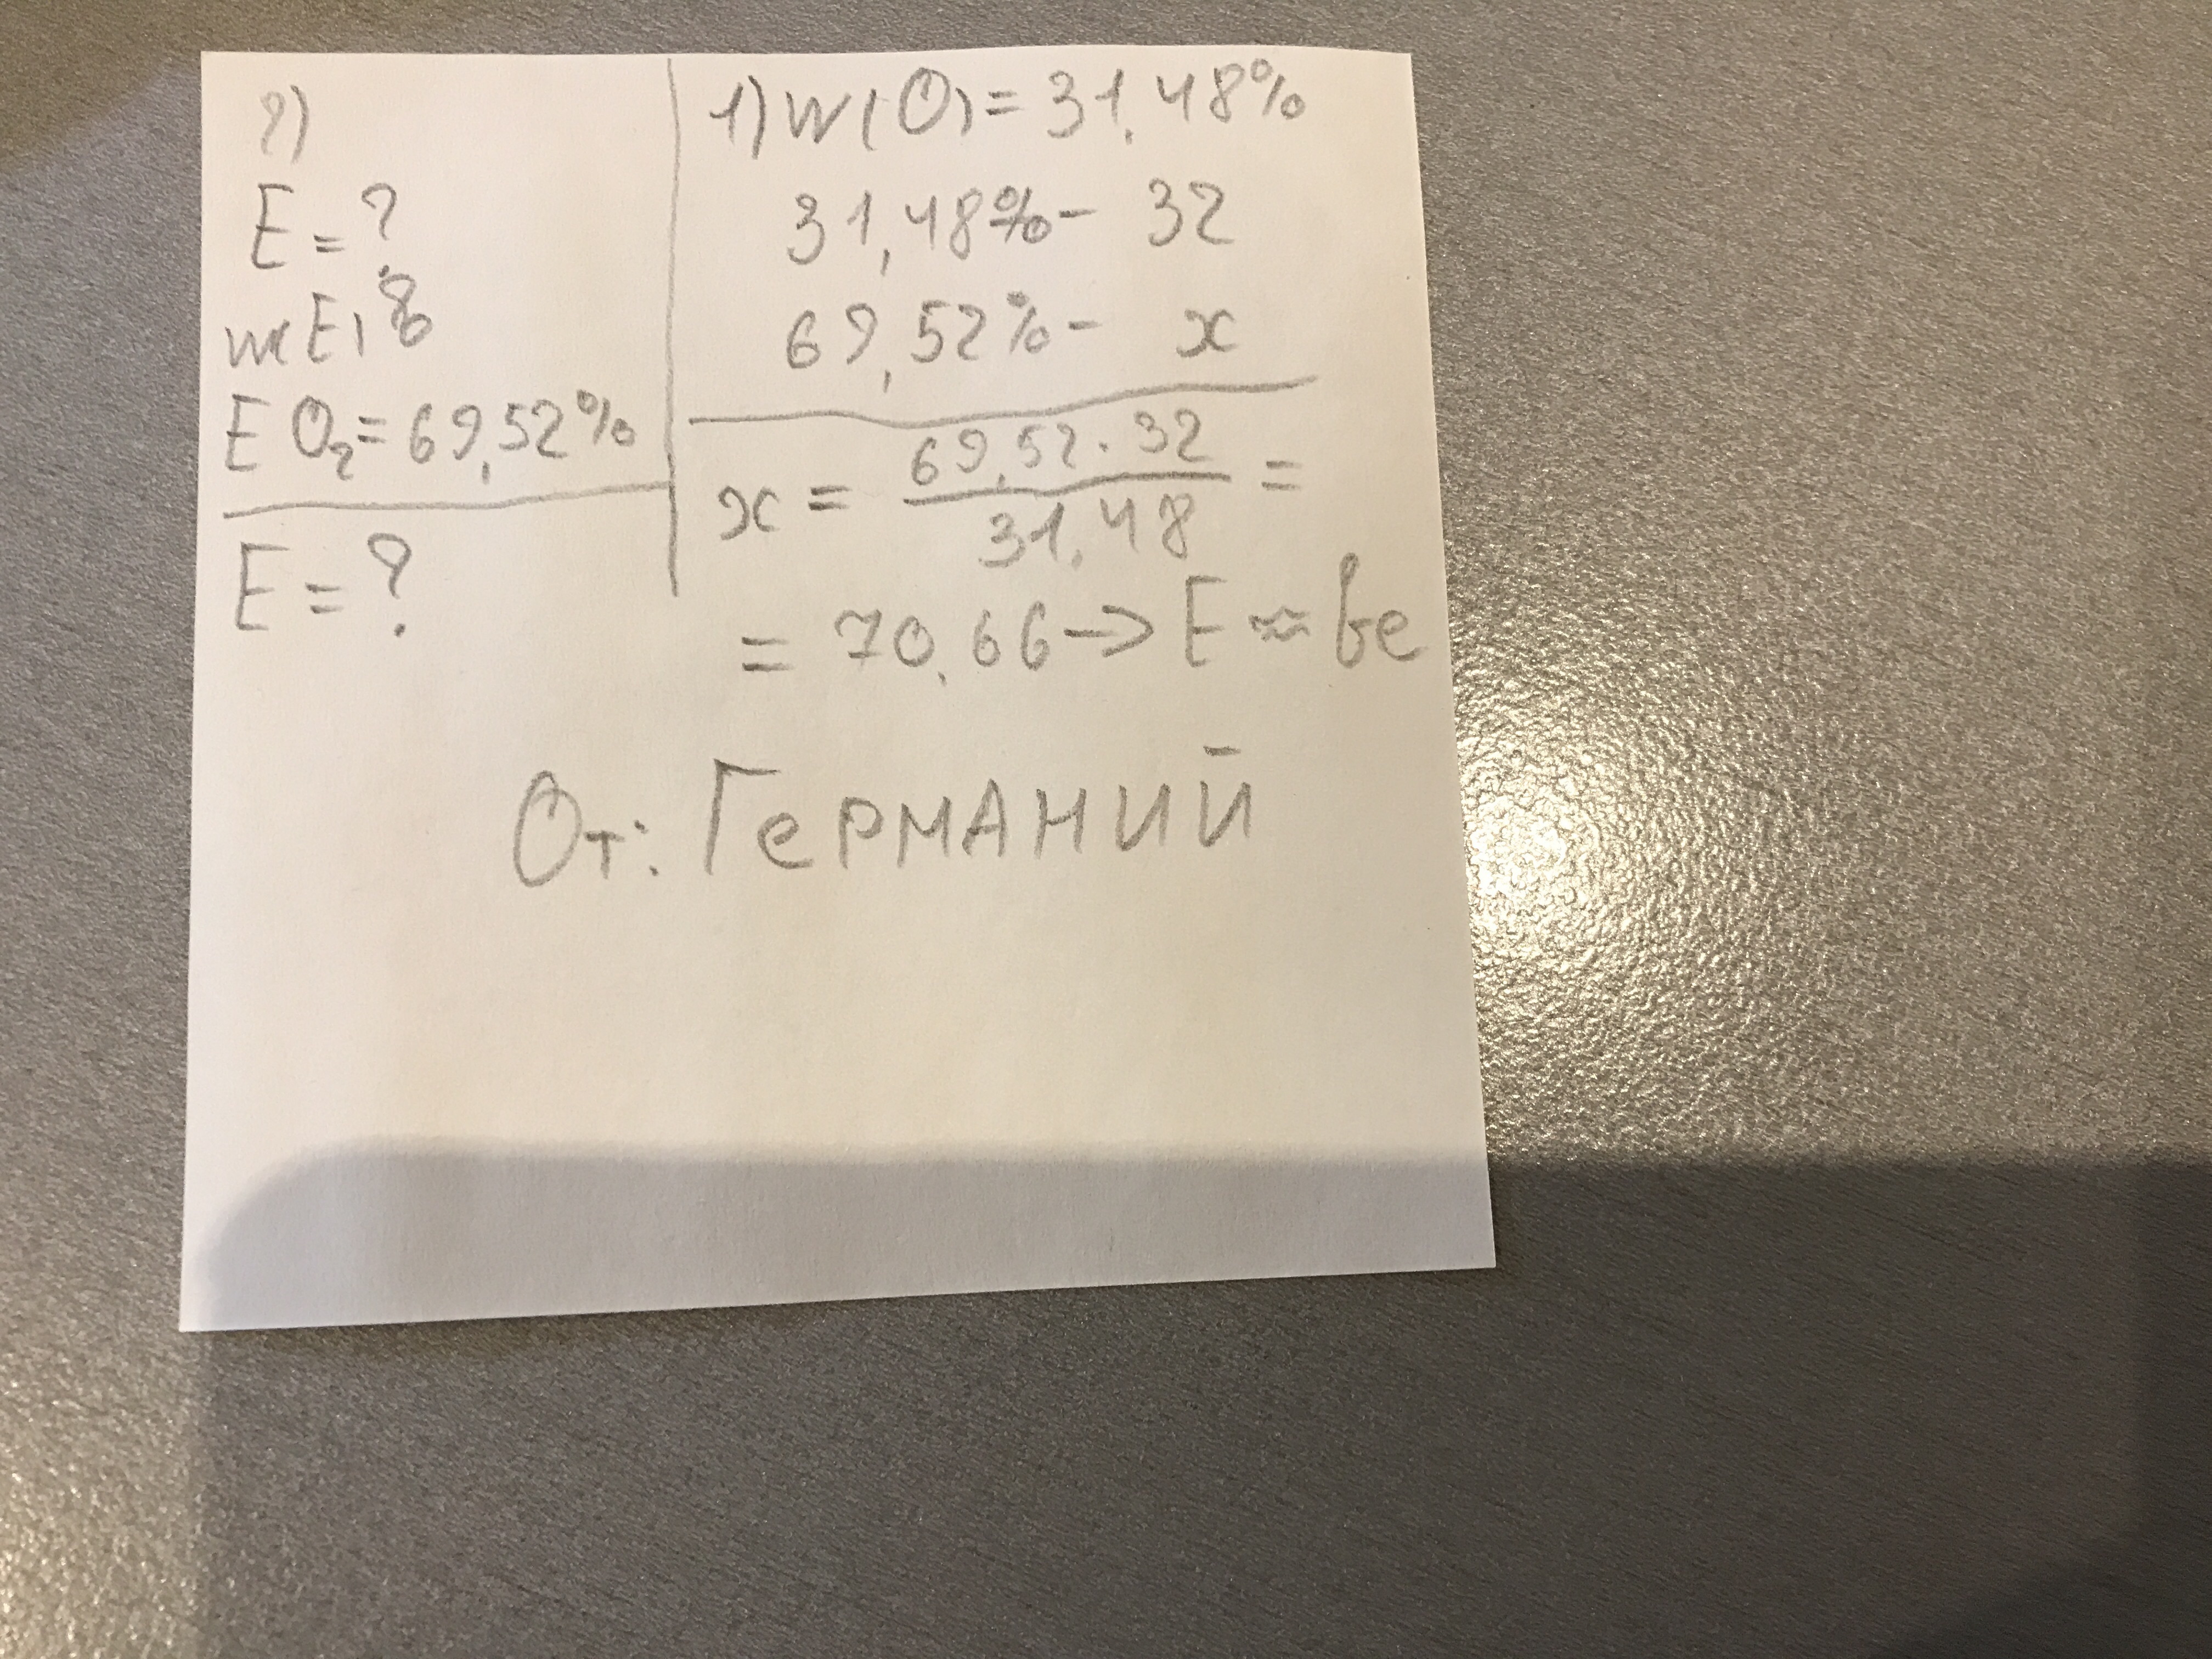 2)
E = ?
w(E) в
EO₂ = 69,52%
E = ?
1) w(O) = 31,48%
31,48% - 32
69,52% - x
x = 69,52 · 32 / 31,48 =
= 70,66 -> E ≈ Ge
От: Германий